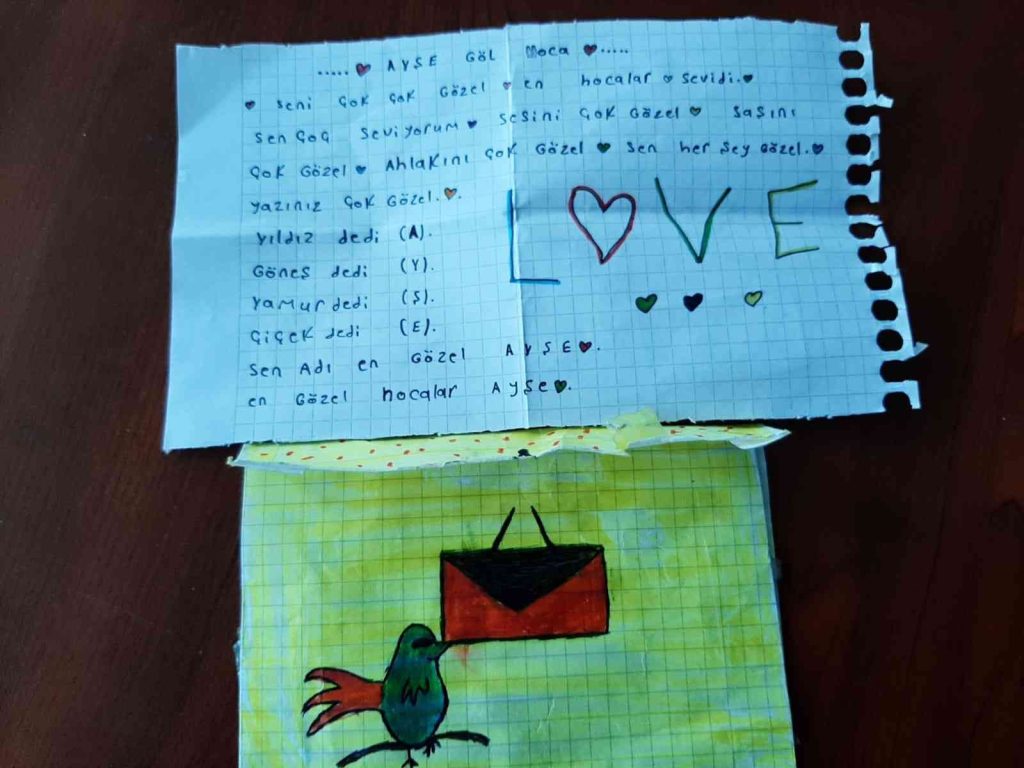 ..... ❤ AYŞE Göl Hoca ❤.....
❤ Seni Çok Çok Gözel ❤ en hocalar ❤ Sevidi.❤
Sen Çoç Seviyorum ❤ Sesini Çok Gözel ❤ Saşını
Çok Gözel ❤ Ahlakını Çok Gözel ❤ Sen her Şey Gözel.❤
Yazınız Çok Gözel.❤.
Yıldız dedi (A).
Göneş dedi (Y).
Yamur dedi (Ş).
Çiçek dedi (E).
Sen Adı en Gözel AYŞE❤.
en Gözel hocalar Ayşe❤.
L❤VE